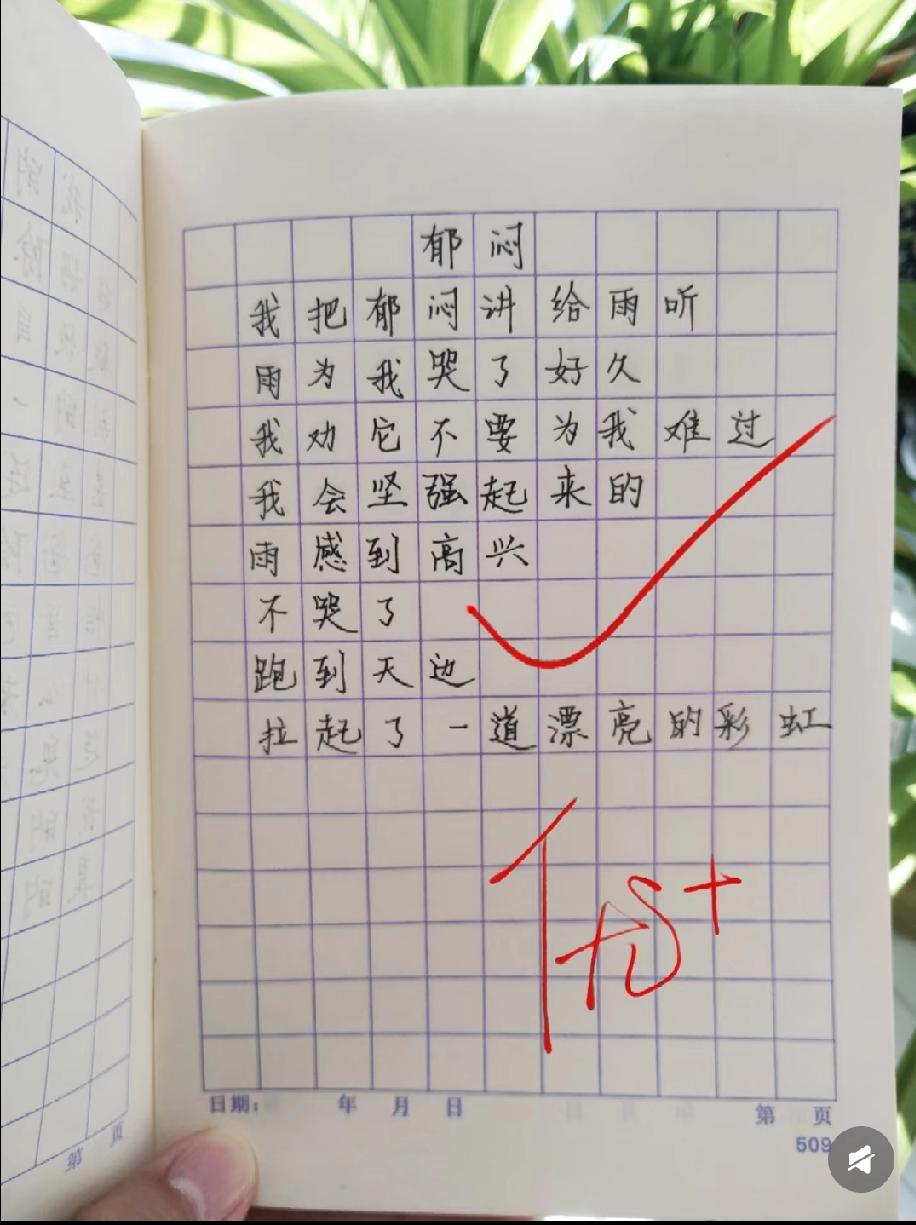 郁闷
我把郁闷讲给雨听
雨为我哭了好久
我劝它不要为我难过
我会坚强起来的
雨感到高兴
不哭了
跑到天边
拉起了一道漂亮的彩虹
优+
日期: 年 月 日 第 页
509
第 页